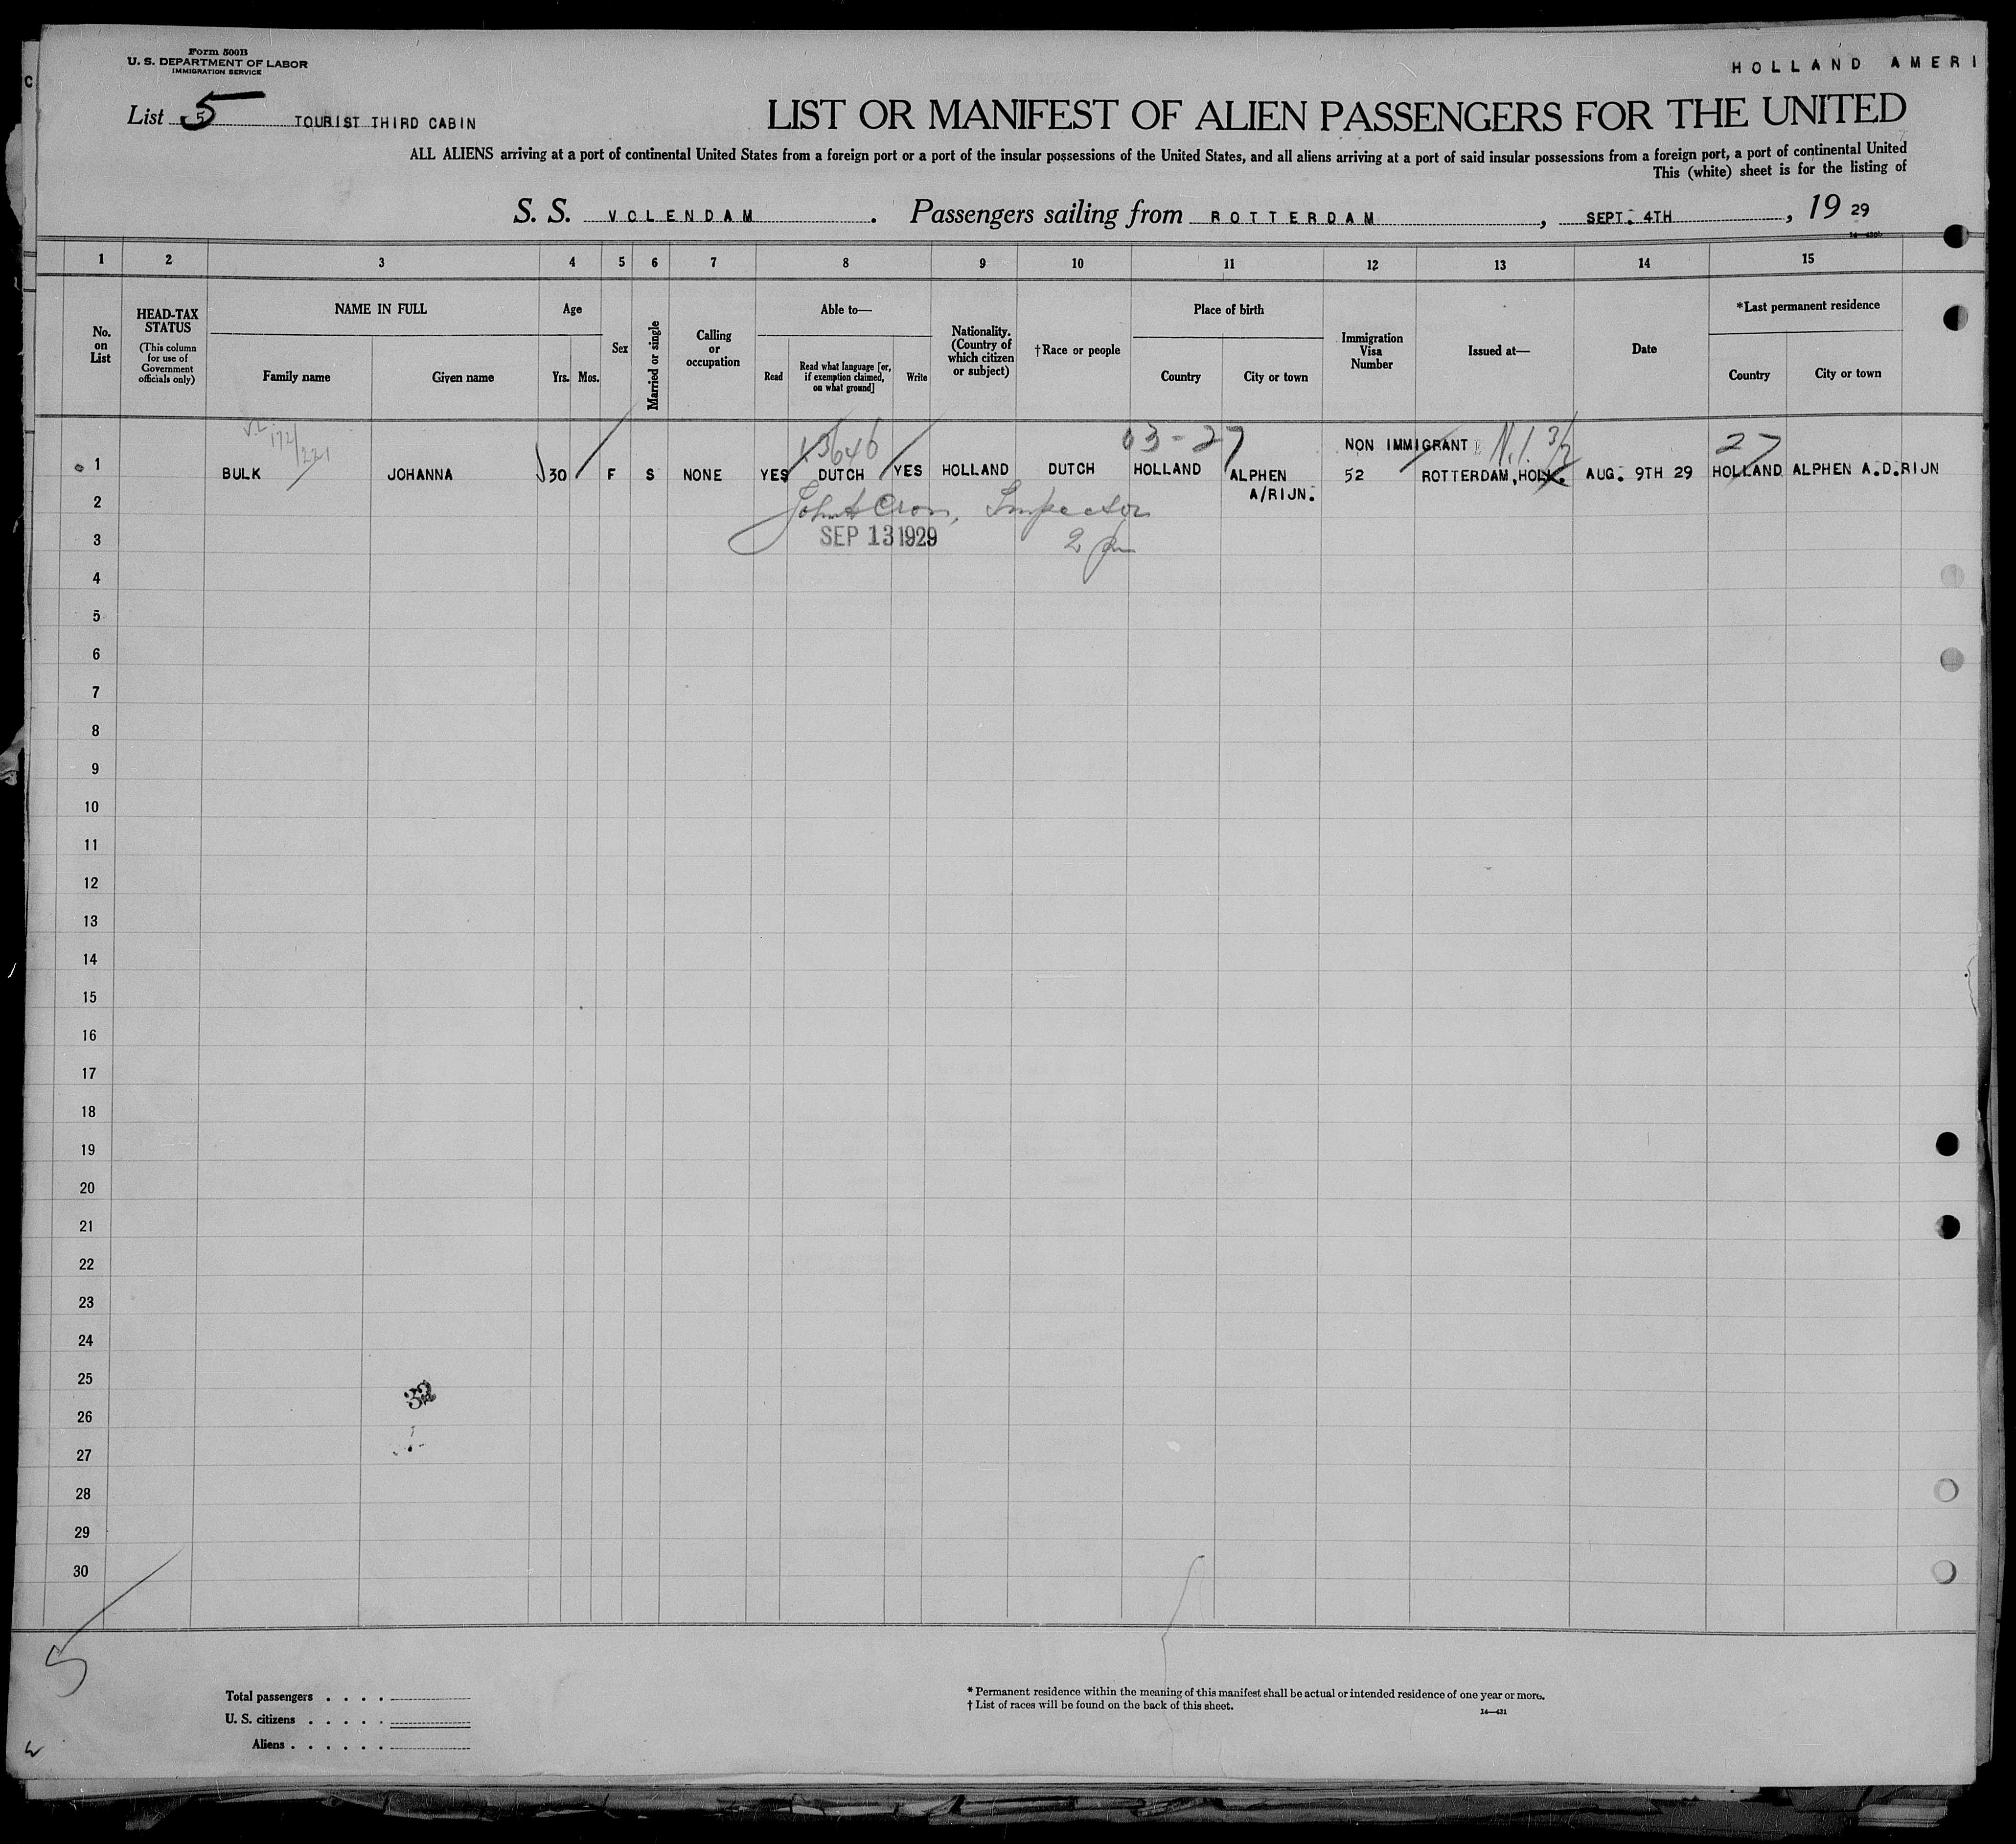 Form 500B
U. S. DEPARTMENT OF LABOR
IMMIGRATION SERVICE
HOLLAND AMERI
List 5 TOURIST THIRD CABIN
LIST OR MANIFEST OF ALIEN PASSENGERS FOR THE UNITED
ALL ALIENS arriving at a port of continental United States from a foreign port or a port of the insular possessions of the United States, and all aliens arriving at a port of said insular possessions from a foreign port, a port of continental United
This (white) sheet is for the listing of
S. S. VOLENDAM. Passengers sailing from ROTTERDAM, SEPT. 4TH, 19 29
1 2 3 4 5 6 7 8 9 10 11 12 13 14 15
No. on List
HEAD-TAX STATUS
(This column for use of Government officials only)
NAME IN FULL
Family name Given name
Age
Yrs. Mos.
Sex
Married or single
Calling or occupation
Able to—
Read
Read what language [or, if exemption claimed, on what ground]
Write
Nationality. (Country of which citizen or subject)
†Race or people
Place of birth
Country City or town
Immigration Visa Number
Issued at—
Date
*Last permanent residence
Country City or town
172/221
03-27
NON IMMIGRANT N.I. 3/2
27
1 BULK JOHANNA 30 F S NONE YES DUTCH YES HOLLAND DUTCH HOLLAND ALPHEN A/RIJN. 52 ROTTERDAM, HOLL. AUG. 9TH 29 HOLLAND ALPHEN A.D.RIJN
2 Inspector
3 SEP 13 1929 2 pm
4
5
6
7
8
9
10
11
12
13
14
15
16
17
18
19
20
21
22
23
24
25
32
26
27
28
29
30
5
Total passengers . . . .
U. S. citizens . . . . .
Aliens . . . . . .
* Permanent residence within the meaning of this manifest shall be actual or intended residence of one year or more.
† List of races will be found on the back of this sheet.
14—431